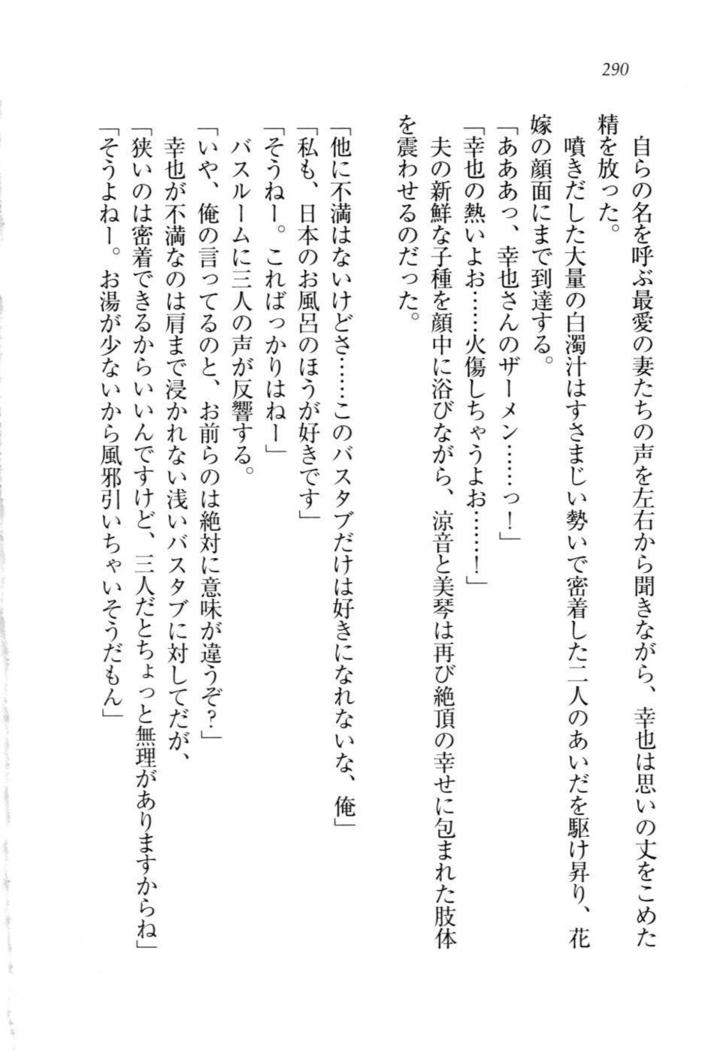 290
　自らの名を呼ぶ最愛の妻たちの声を左右から聞きながら、幸也は思いの丈をこめた
精を放った。
　噴きだした大量の白濁汁はすさまじい勢いで密着した二人のあいだを駆け昇り、花
嫁の顔面にまで到達する。
「あああっ、幸也さんのザーメン……っ！」
「幸也の熱いよお……火傷しちゃうよお……！」
　夫の新鮮な子種を顔中に浴びながら、涼音と美琴は再び絶頂の幸せに包まれた肢体
を震わせるのだった。
「他に不満はないけどさ……このバスタブだけは好きになれないな、俺」
「私も、日本のお風呂のほうが好きです」
「そうねー。こればっかりはねー」
　バスルームに三人の声が反響する。
「いや、俺の言ってるのと、お前らのは絶対に意味が違うぞ？」
　幸也が不満なのは肩まで浸かれない浅いバスタブに対してだが、
「狭いのは密着できるからいいんですけど、三人だとちょっと無理がありますからね」
「そうよねー。お湯が少ないから風邪引いちゃいそうだもん」